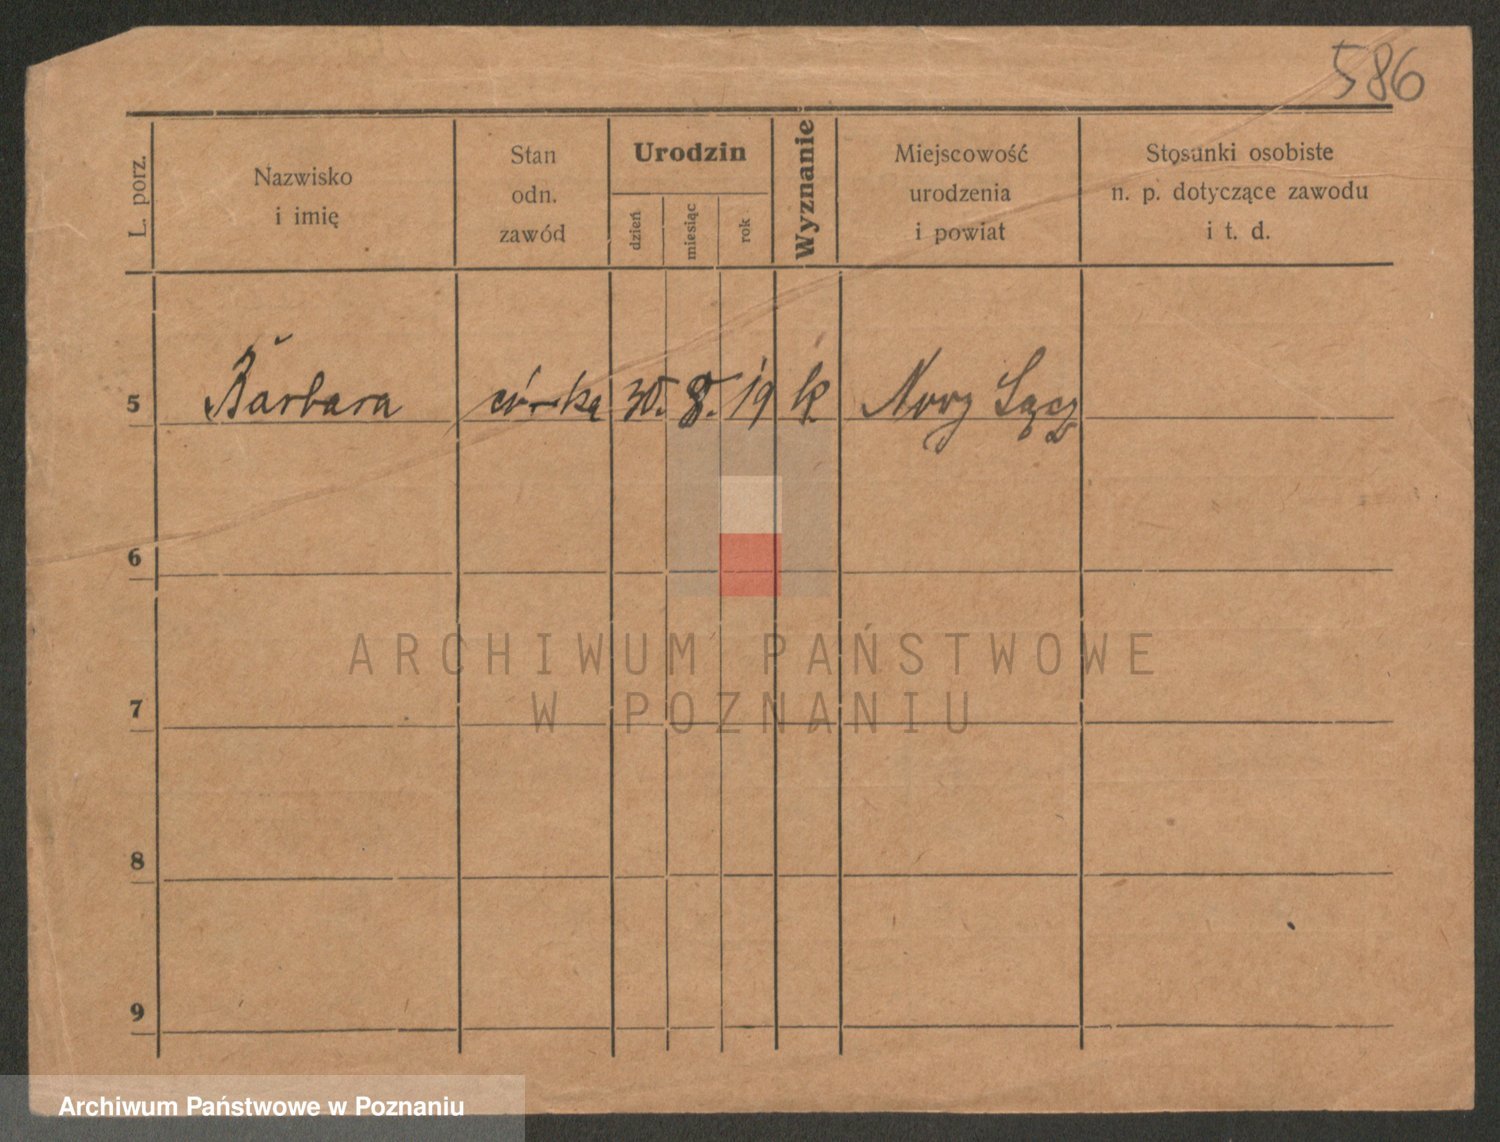 586
L. porz.
Nazwisko
i imię
Stan
odn.
zawód
Urodzin
dzień
miesiąc
rok
Wyznanie
Miejscowość
urodzenia
i powiat
Stosunki osobiste
n. p. dotyczące zawodu
i t. d.
5 Barbara córka 30. 8. 19 k Nowy Sącz
6
7
8
9
ARCHIWUM PAŃSTWOWE
W POZNANIU
Archiwum Państwowe w Poznaniu